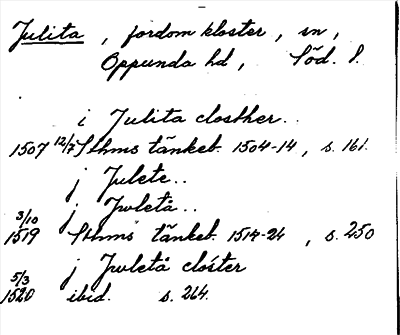 Julita , fordom kloster , sn ,
Oppunda hd , Söd. l.
i Julita closther..
1507 12/7 Sthms tänkeb. 1504-14 , s. 161.
j Julete..
j Jwletå..
3/10
1519 Sthms tänkeb. 1514-24 , s. 250
j Jwletå clóster
5/3
1520 ibid. s. 264.